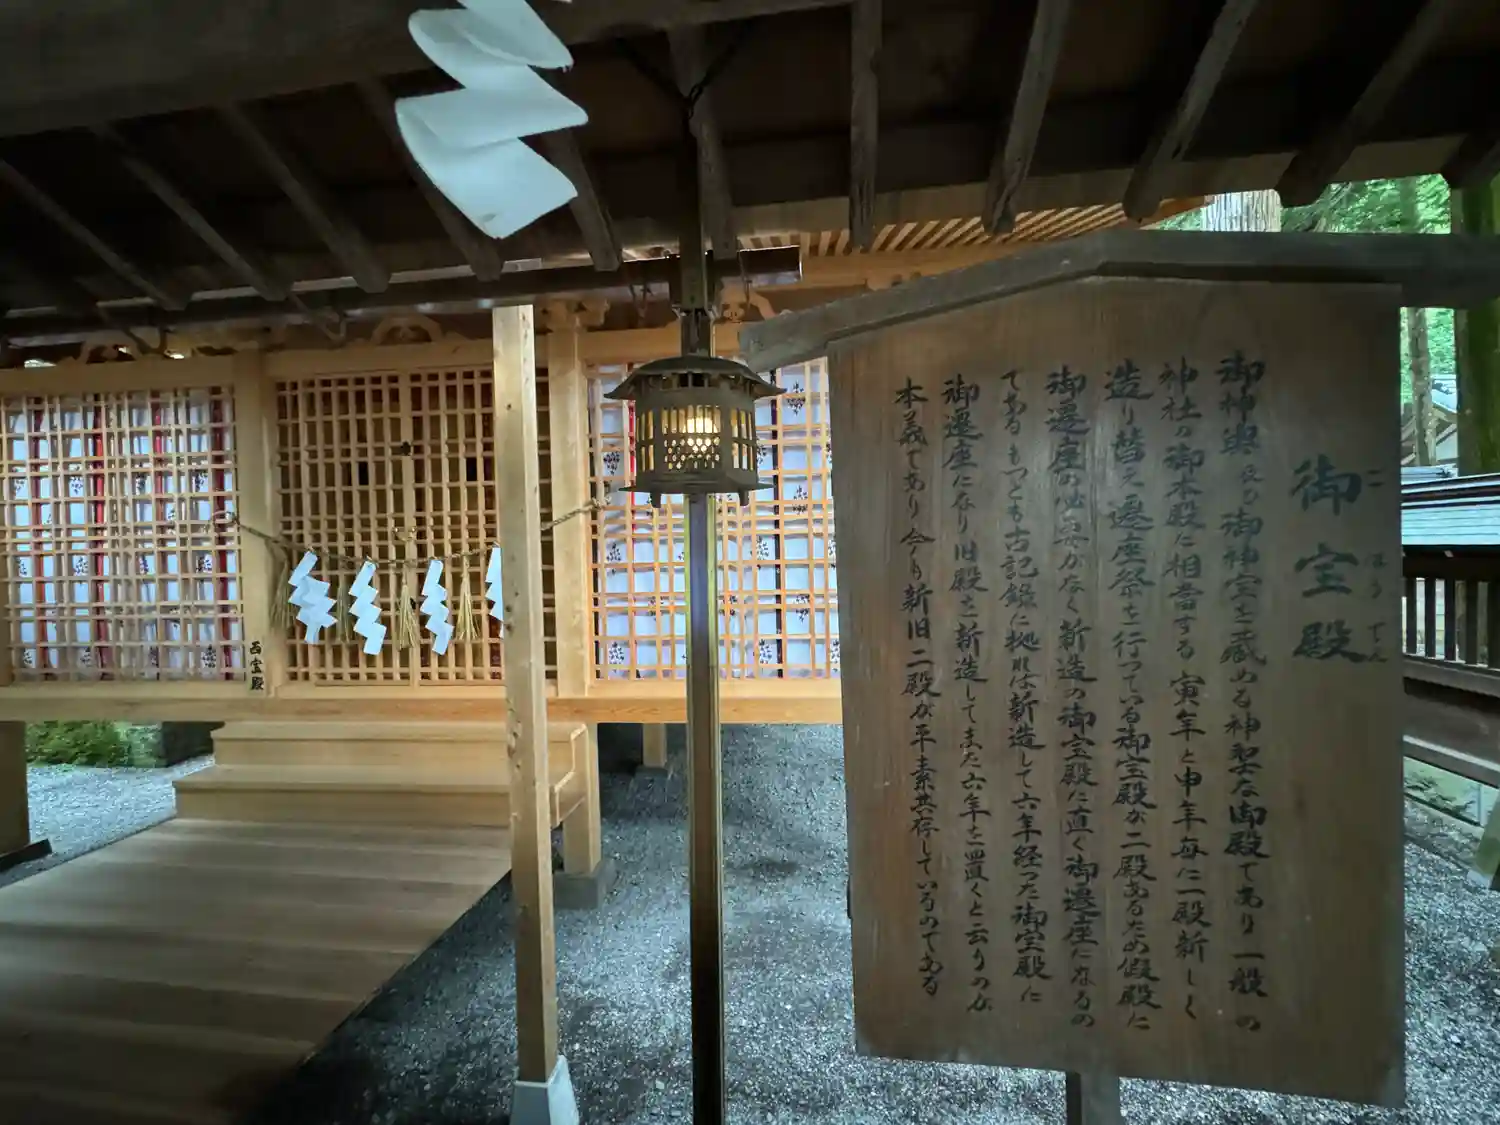 御宝殿
ごほうでん
御神輿及び御神宝を蔵める神聖な御殿であり一般の
神社の御本殿に相当する 寅年と申年毎に一殿新しく
造り替え遷座祭を行っている御宝殿が二殿あるため假殿に
御遷座の必要がなく新造の御宝殿に直ぐ御遷座になるの
であるもっとも古記録に拠れば新造して六年経った御宝殿に
御遷座になり旧殿を新造してまた六年を置くと云うのが
本義であり今も新旧二殿が平素共存しているのである
西宝殿